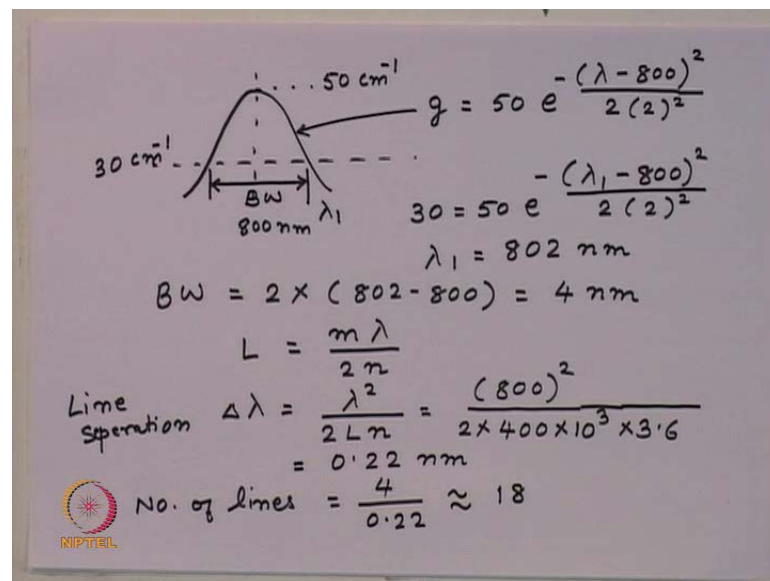 ... 50 cm⁻¹
g = 50 e^{-(λ - 800)²/2(2)²}
30 cm⁻¹
BW
800 nm λ₁
30 = 50 e^{-(λ₁ - 800)²/2(2)²}
λ₁ = 802 nm
BW = 2 × (802 - 800) = 4 nm
L = mλ/2n
Line seperation Δλ = λ²/2Ln = (800)²/2 × 400 × 10³ × 3.6
= 0.22 nm
No. of lines = 4/0.22 ≈ 18
NPTEL